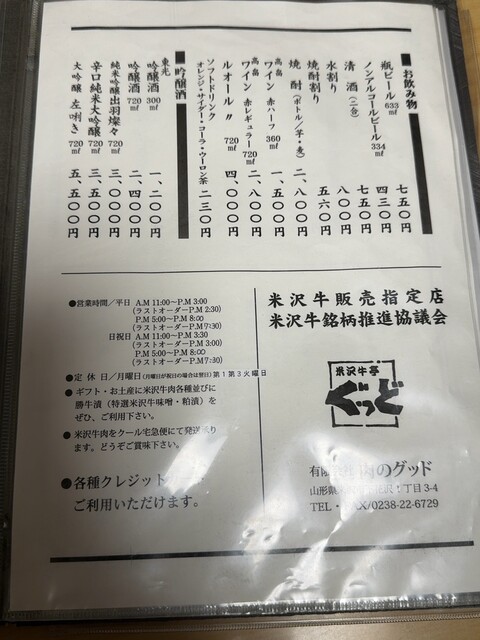 お飲み物
瓶ビール 633㎖ 七五〇円
ノンアルコールビール 334㎖ 四三〇円
清酒(二合) 七五〇円
水割り 八〇〇円
焼酎割り 五六〇円
焼酎(ボトル/芋・麦) 二、八〇〇円
高畠ワイン 赤ハーフ 360㎖ 一、五〇〇円
高畠ワイン 赤レギュラー 720㎖ 二、八〇〇円
ルオール 〃 720㎖ 四、〇〇〇円
ソフトドリンク 二三〇円
オレンジ・サイダー・コーラ・ウーロン茶
吟醸酒
東光
吟醸酒 300㎖ 一、二〇〇円
吟醸酒 720㎖ 二、四〇〇円
純米吟醸出羽燦々 720㎖ 三、〇〇〇円
辛口純米大吟醸 720㎖ 三、五〇〇円
大吟醸 左唎き 720㎖ 五、五〇〇円
●営業時間/平日 A.M 11:00~P.M 3:00
(ラストオーダーP.M 2:30)
P.M 5:00~P.M 8:00
(ラストオーダーP.M 7:30)
日祝日 A.M 11:00~P.M 3:30
(ラストオーダーP.M 3:00)
P.M 5:00~P.M 8:00
(ラストオーダーP.M 7:30)
●定休日/月曜日(月曜日が祝日の場合は翌日)第1第3火曜日
●ギフト・お土産に米沢牛肉各種並びに
勝牛漬(特選米沢牛味噌・粕漬)を
ぜひ、ご利用下さい。
●米沢牛肉をクール宅急便にて発送
ます。どうぞご賞味下さい。
●各種クレジット
ご利用いただけます。
米沢牛販売指定店
米沢牛銘柄推進協議会
米沢牛亭
ぐっど
有限 肉のグッド
山形県 丁目3-4
TEL・ X/0238-22-6729